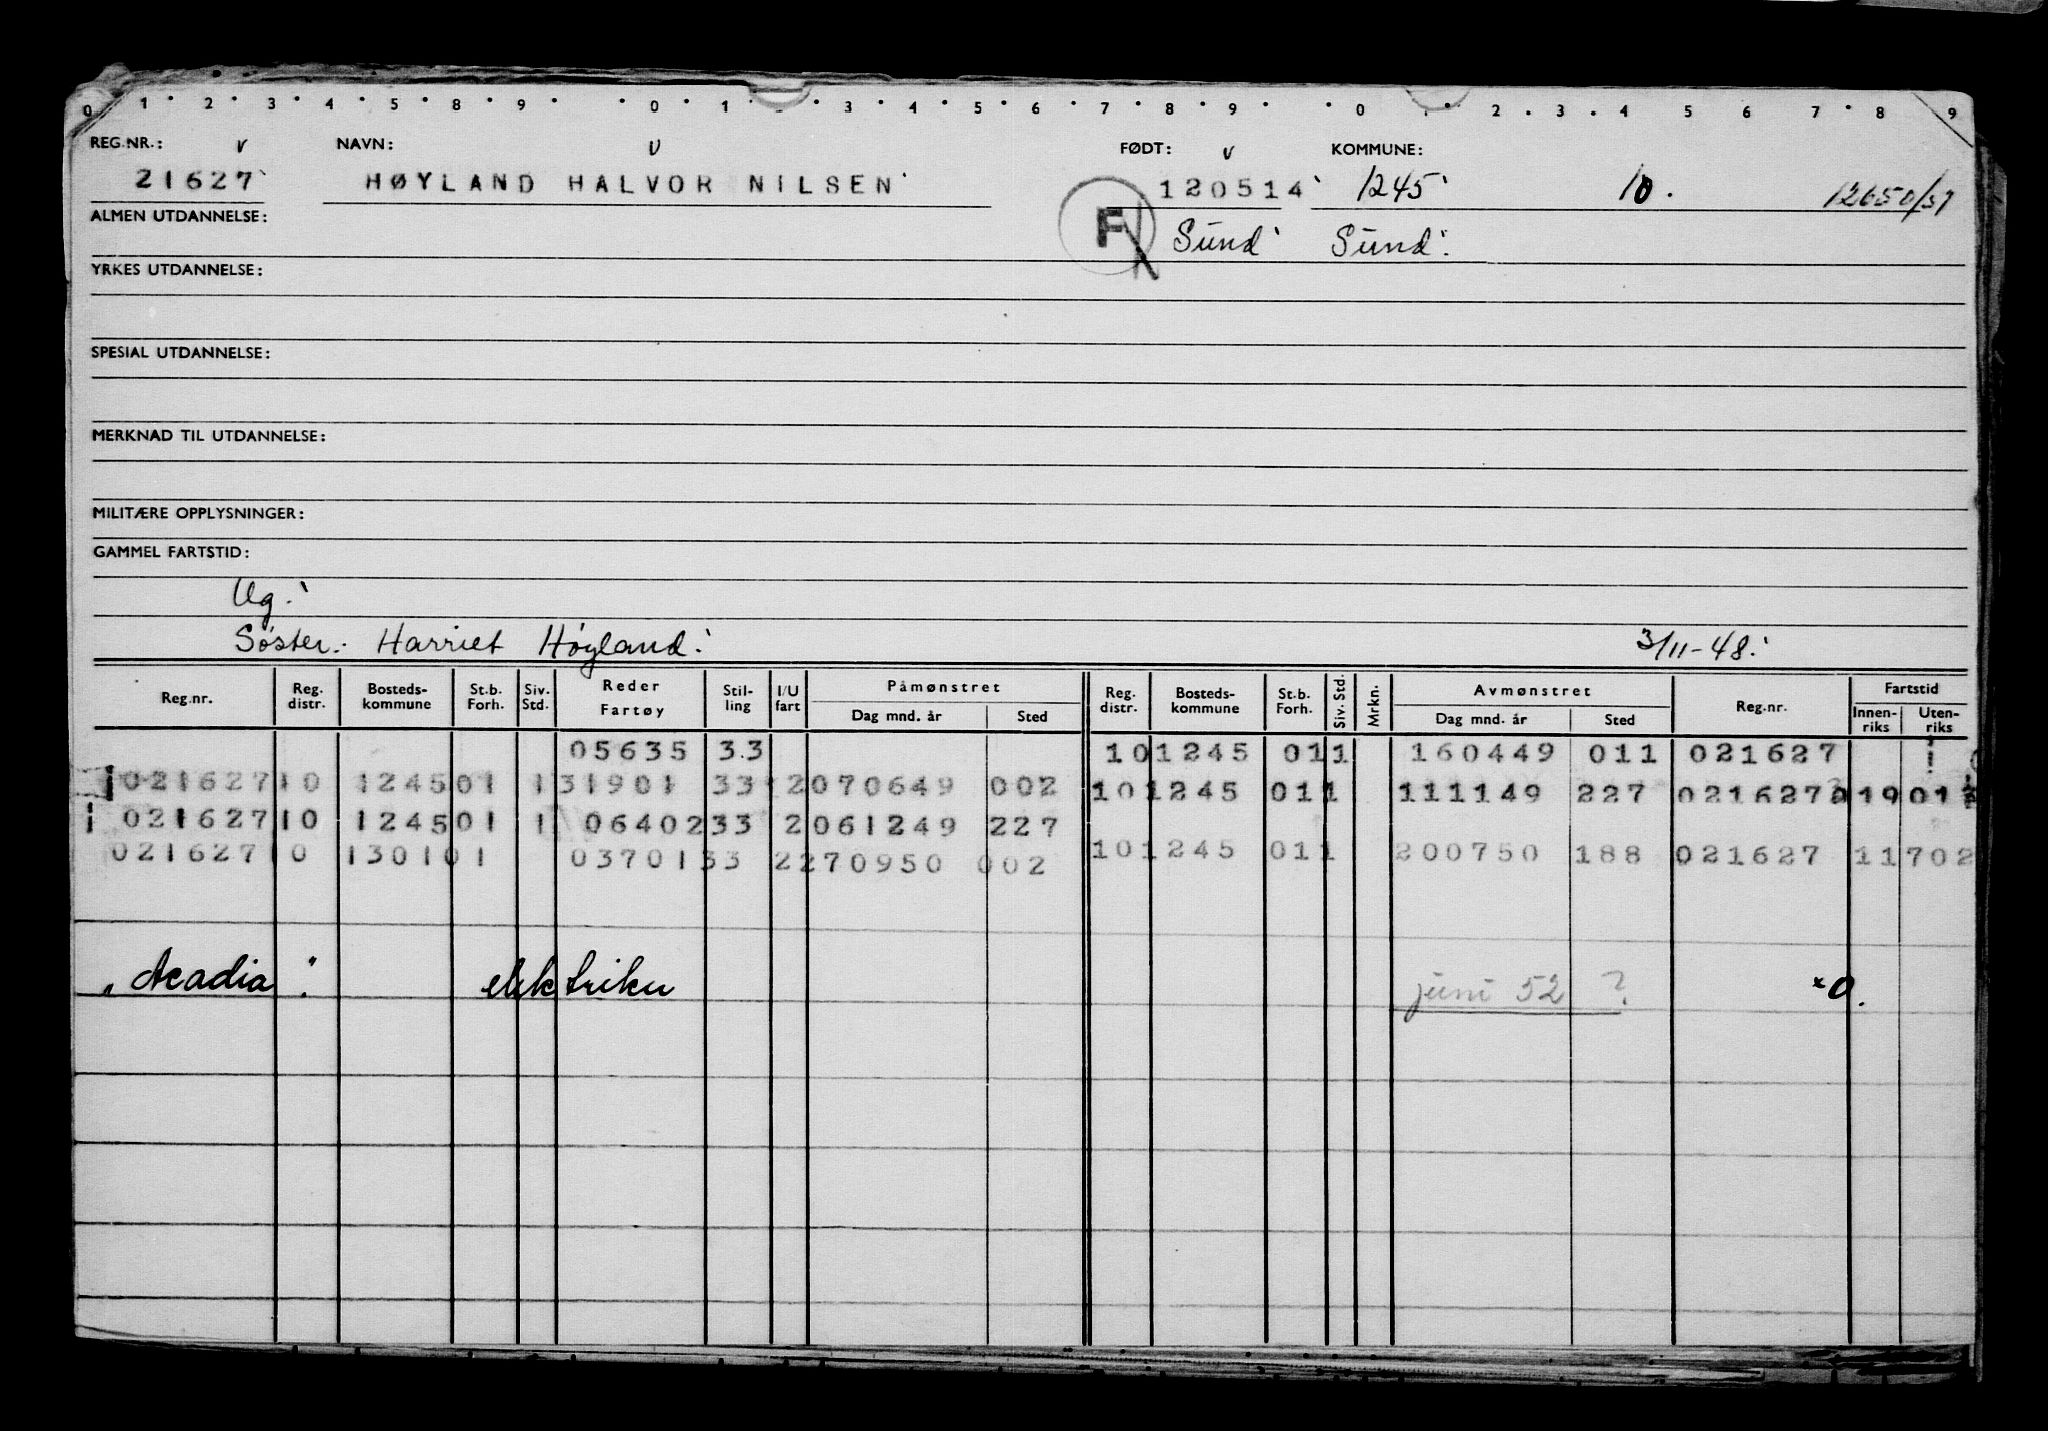 0 1 2 3 4 5 8 9 0 1 3 4 5 6 7 8 9 0 2 3 4 5 6 7 8 9
REG.NR.: v NAVN: v FØDT: v KOMMUNE:
21627 HØYLAND HALVOR NILSEN 120514 1245 10. 12650/51
ALMEN UTDANNELSE: F Sund Sund.
YRKES UTDANNELSE:
SPESIAL UTDANNELSE:
MERKNAD TIL UTDANNELSE:
MILITÆRE OPPLYSNINGER:
GAMMEL FARTSTID:
Ug.
Søster. Harriet Høyland. 3/11-48.
Reg.nr. Reg. distr. Bosteds-kommune St.b. Forh. Siv. Std. Reder Fartøy Stil-ling I/U fart Påmønstret Dag mnd. år Sted Reg. distr. Bosteds-kommune St.b. Forh. Siv. Std. Mrkn. Avmønstret Dag mnd. år Sted Reg.nr. Fartstid Innen-riks Uten-riks
05635 33 10 1245 01 1 160449 011 021627
021627 10 1245 01 1 31901 33 2 070649 002 10 1245 01 1 111149 227 021627
021627 10 1245 01 1 06402 33 2 061249 227 10 1245 01 1 200750 188 021627 11702
021627 10 1301 01 03701 33 2 270950 002
"Acadia". elektriker juni 52 ? x0.